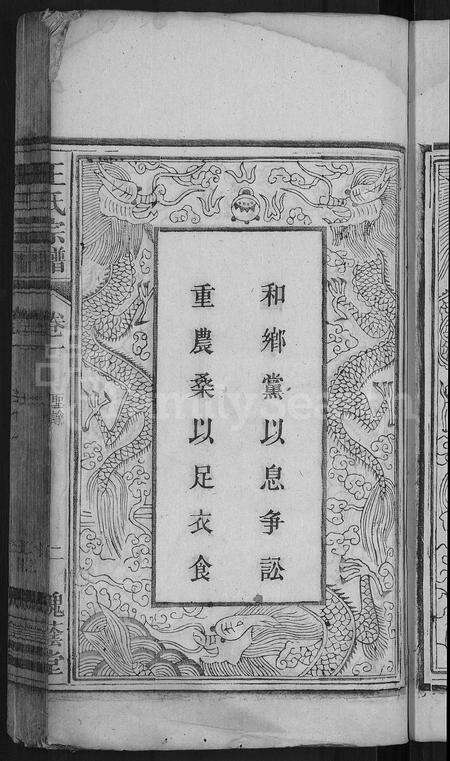 和鄉黨以息爭訟
重農桑以足衣食
王氏宗譜
卷一
槐蔭堂